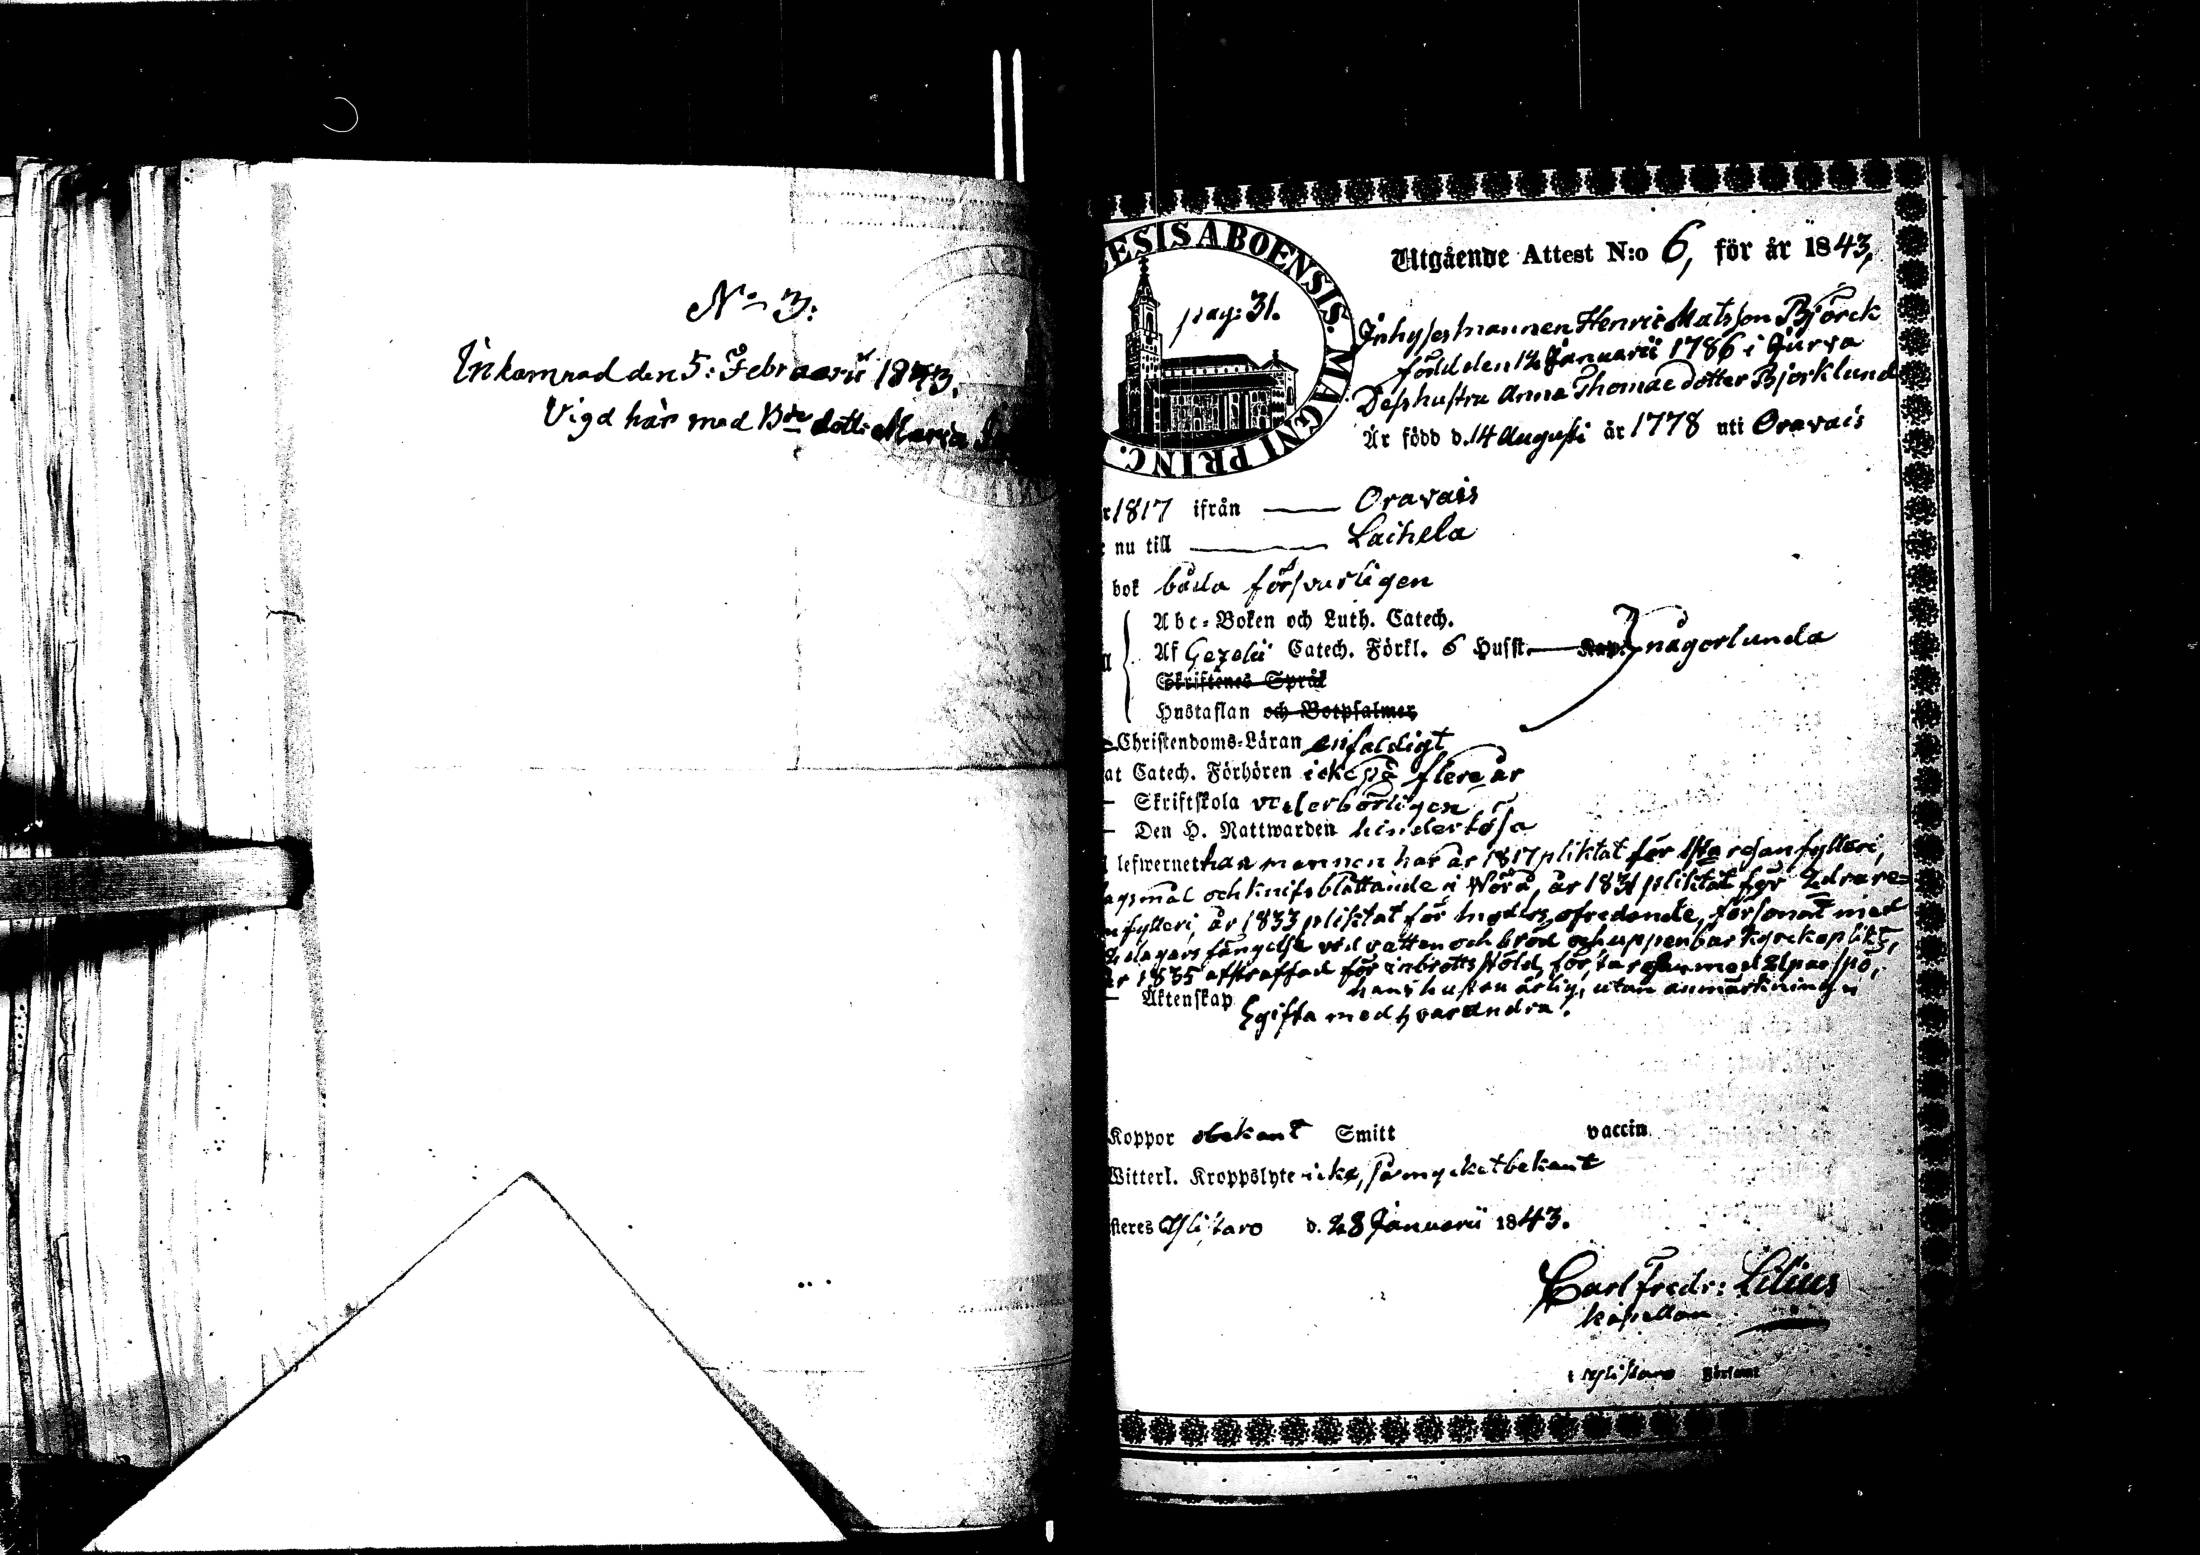 No 3:
Inkomnad den 5: Februarii 1843.
Vigd här med Bde dottr Maria
ESIS ABOENSIS. MAGNI PRINC.
pag: 31.
Utgående Attest N:o 6, för år 1843,
Inhysesmannen Henric Matsson Björck
född den 12 Januarii 1786 i Jurva
Dess hustru Anna Thomae dotter Björklund
Är född d. 14 Augusti år 1778 uti Oravais
r 1817 ifrån — Oravais
r nu till — Laihela
bok båda försvarligen
Abc-Boken och Luth. Catech.
Af Gezelii Catech. Förkl. 6 Husst. — Kap. någorlunda
Skriftenes Språk
Hustaflan och Botpsalmer
Christendoms-Läran enfaldigt
at Catech. Förhören icke på flere år
— Skriftskola vederbörligen
— Den H. Nattwarden hinderlösa
lefwernet har mannen har år 1817 pliktat för 1sta resan fylleri,
agsmål och knifsblottande i Wörå, år 1831 pliktat för 2dra re=
n fylleri, år 1833 pliktat för ofredande, försonat med
dagars fängelse vid vatten och bröd och uppenbar kyrkoplikt,
år 1835 afstraffad för inbrotts stöld, första resan med 21 par spö,
hans hustru ärlig, utan anmärkning
— Äktenskap
gifta med hvarandra.
Koppor obekant Smitt vaccin
Witterl. Kroppslyte icke, så mycket bekant
steres Ylistaro d. 28 Januarii 1843.
Carl Fredr: Lilius
kapellan
i Ylistaro Församl